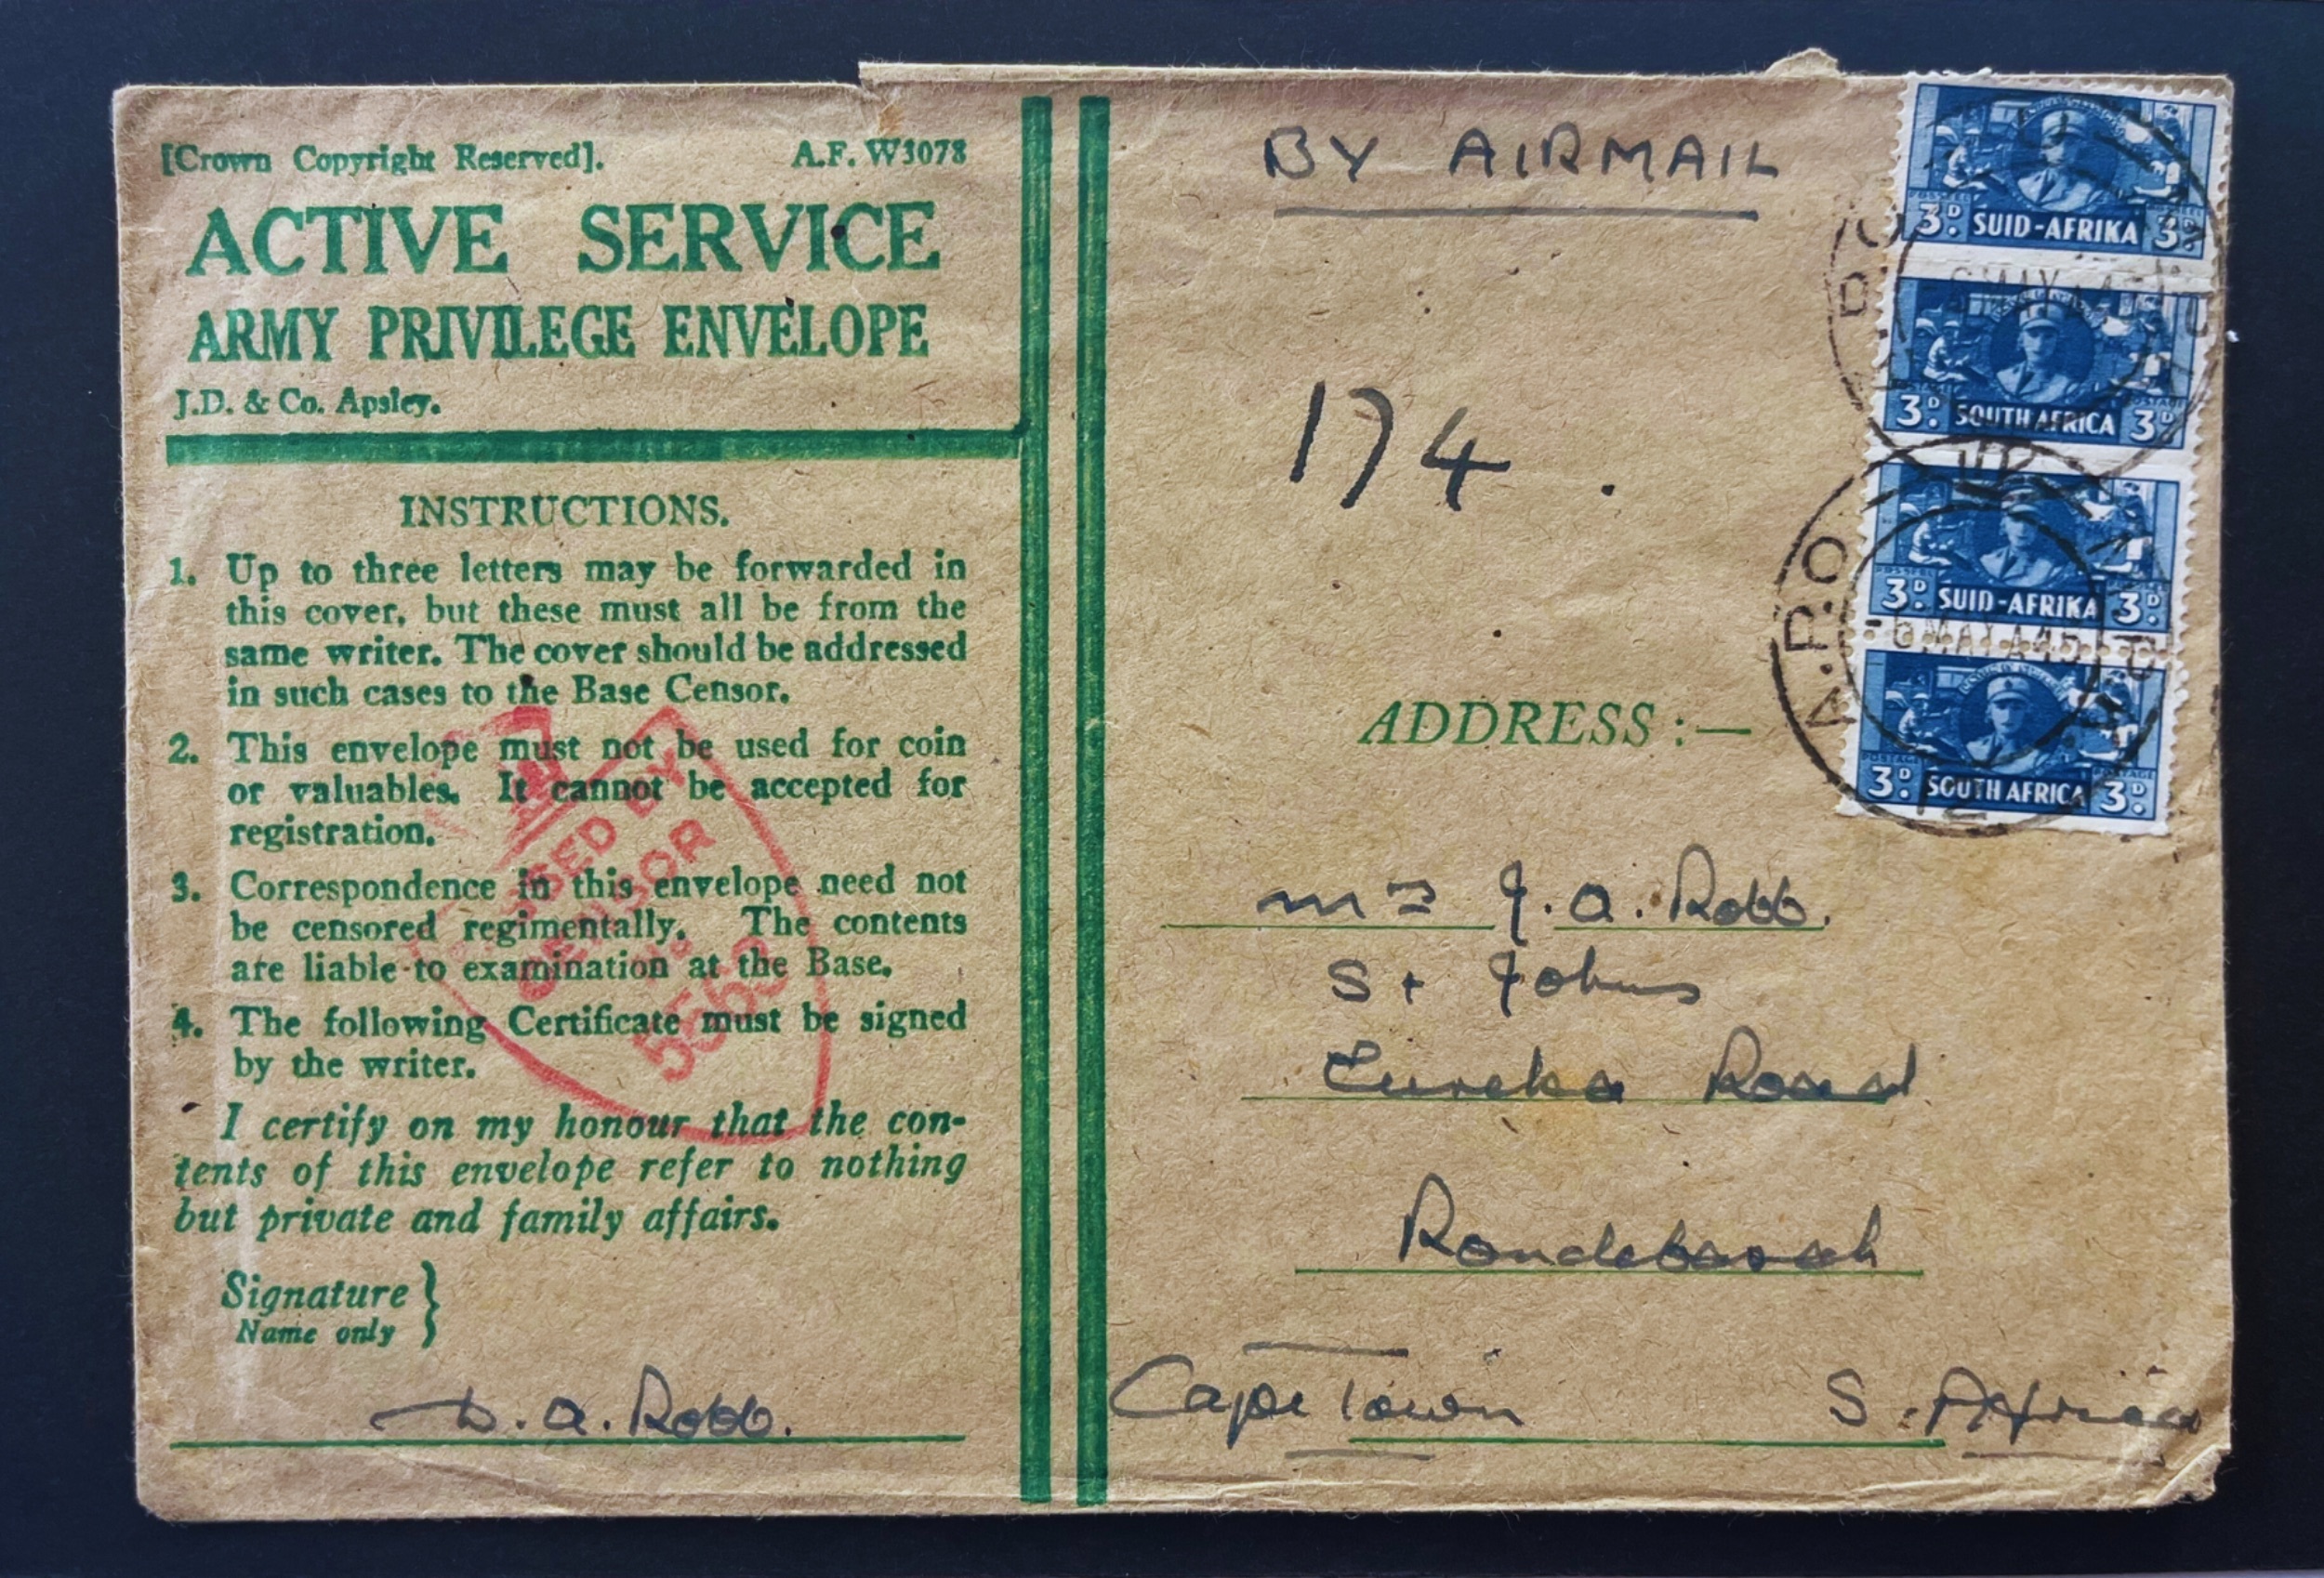 [Crown Copyright Reserved]. A.F. W3078
ACTIVE SERVICE
ARMY PRIVILEGE ENVELOPE
J.D. & Co. Apsley.
INSTRUCTIONS.
1. Up to three letters may be forwarded in
this cover, but these must all be from the
same writer. The cover should be addressed
in such cases to the Base Censor.
2. This envelope must not be used for coin
or valuables. It cannot be accepted for
registration.
3. Correspondence in this envelope need not
be censored regimentally. The contents
are liable to examination at the Base.
4. The following Certificate must be signed
by the writer.
I certify on my honour that the con-
tents of this envelope refer to nothing
but private and family affairs.
Signature }
Name only
D. A. Robb.
BY
CENSOR
5563
BY AIRMAIL
174.
3D. SUID-AFRIKA 3D.
3D. SOUTH AFRICA 3D.
3D. SUID-AFRIKA 3D.
3D. SOUTH AFRICA 3D.
A.P.O. U-MPK
-6 MAY A45
12
ADDRESS :—
Mrs J. A. Robb.
St Johns
Eureka Road
Rondebosch
Cape Town S. Africa